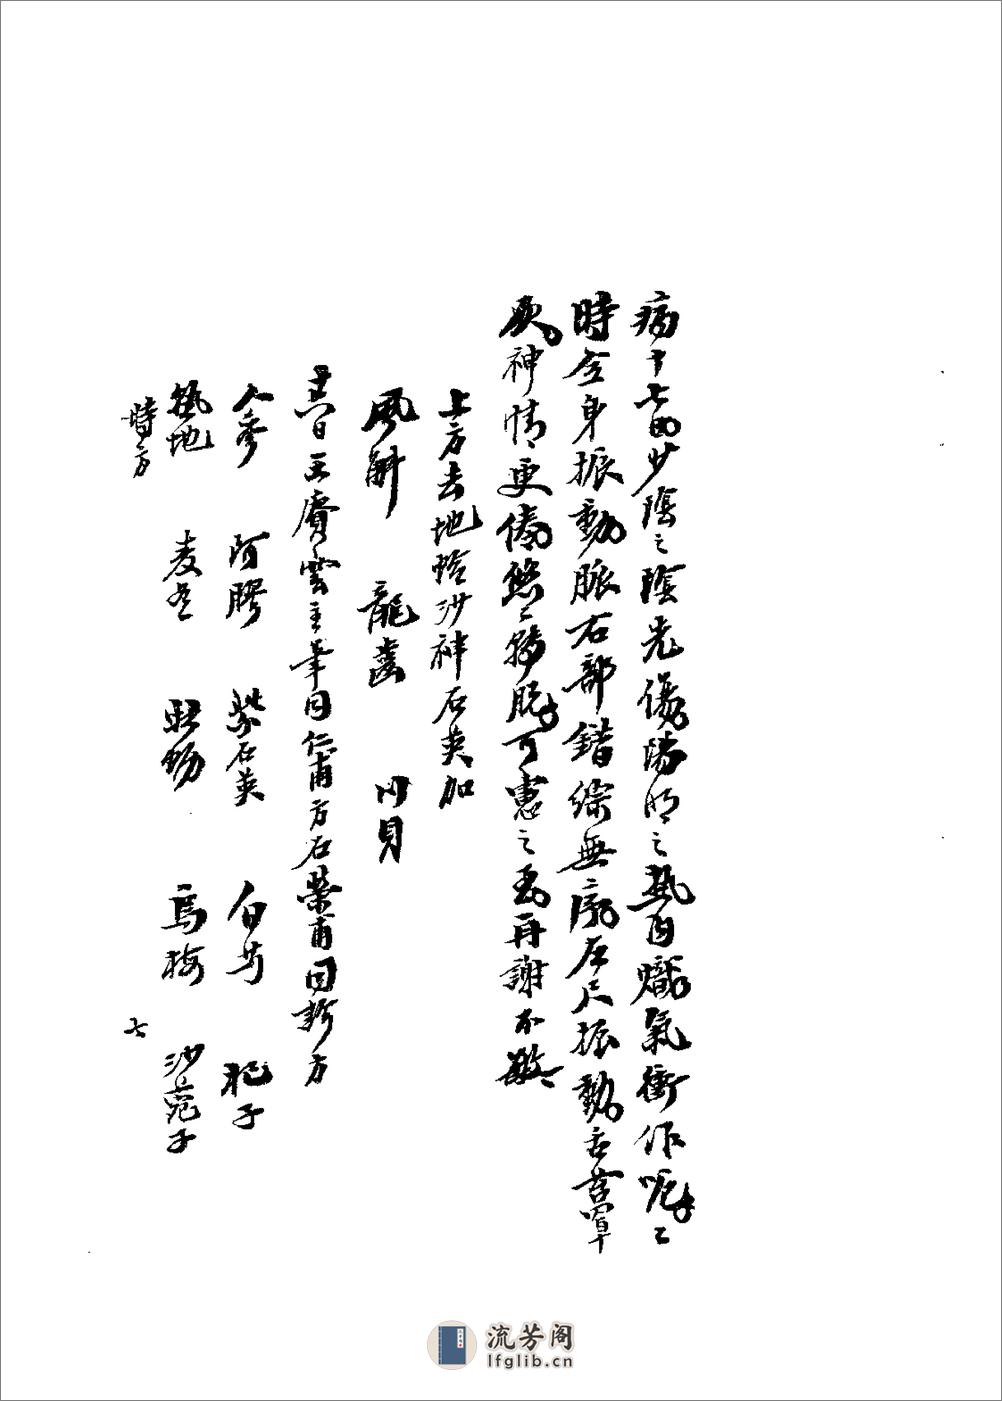 病十七日少陰之陰先傷陽明之熱自熾氣衝作呃呃
時全身振動脈右部錯綜無序左尺振動舌苔單
灰神情更倦悠悠務脫可慮之至再謝不敏
上方去地蛤沙神石英加
風斛 龍齒 川貝
十六日王賡雲主筆同仁甫方石榮甫同診方
人參 阿膠 紫石英 白芍 杞子
熟地 麦冬 牡蛎 烏梅 沙苑子
時方 七
流芳阁
lfglib.cn